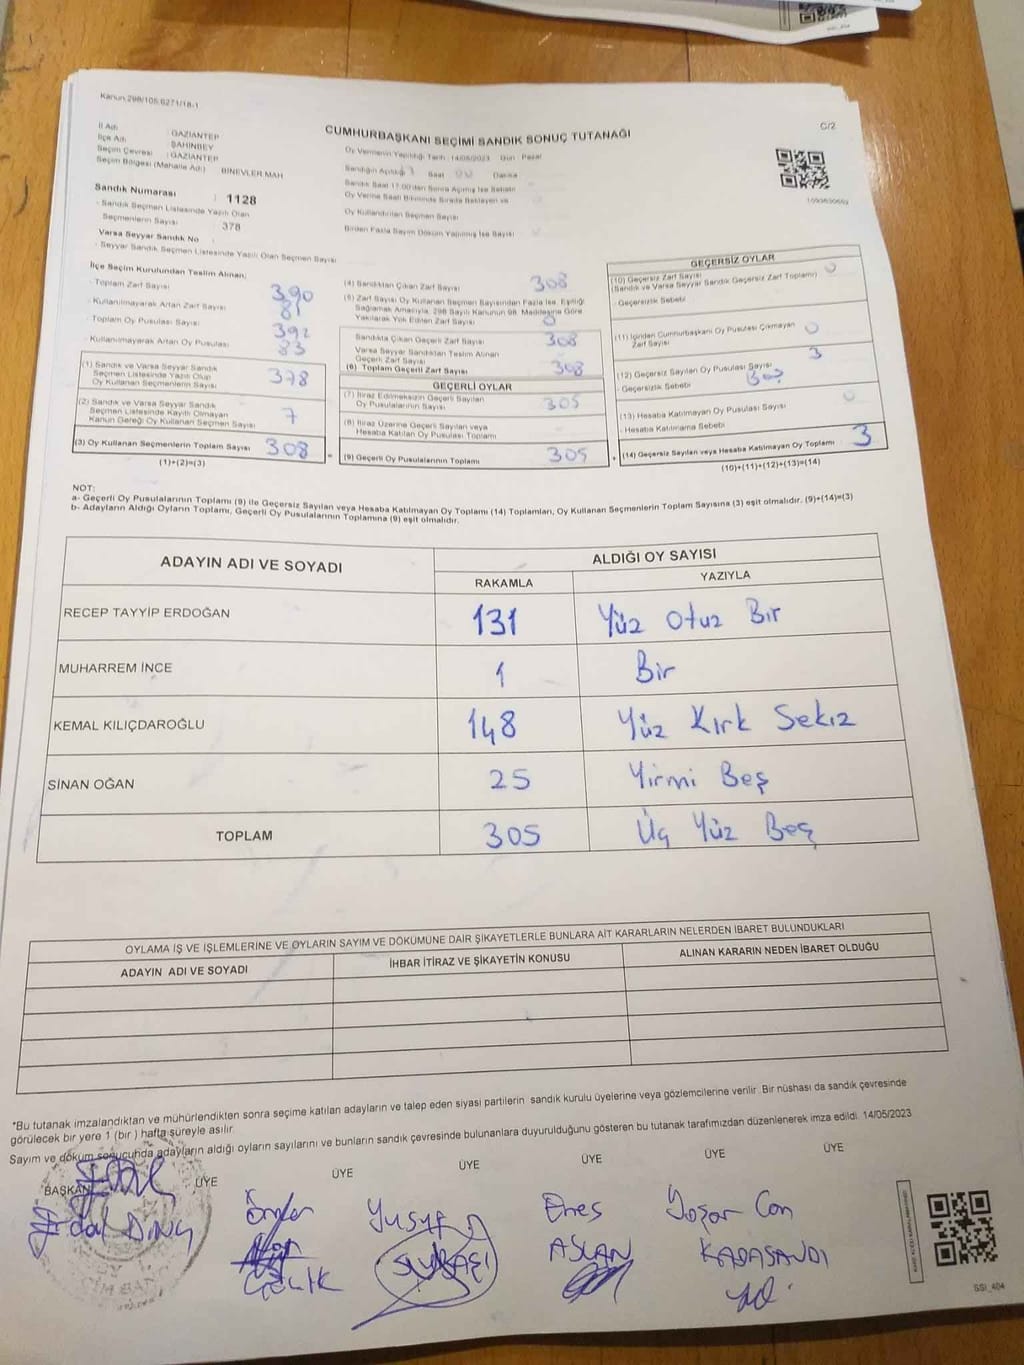 Kanun:298/105;6271/18-1
CUMHURBAŞKANI SEÇİMİ SANDIK SONUÇ TUTANAĞI
C/2
İl Adı : GAZIANTEP
İlçe Adı : ŞAHİNBEY
Seçim Çevresi : GAZIANTEP
Seçim Bölgesi (Mahalle Adı) BİNEVLER MAH
Oy Vermenin Yapıldığı Tarih :14/05/2023 Gün Pazar
Sandığın Açıldığı Saat Dakika
Sandık Saat 17:00'den Sonra Açılmış İse Sebebi
Oy Verme Saati Bitiminde Sırada Bekleyen ve
Oy Kullandırılan Seçmen Sayısı
Birden Fazla Sayım Döküm Yapılmış İse Sayısı
Sandık Numarası : 1128
- Sandık Seçmen Listesinde Yazılı Olan
Seçmenlerin Sayısı 378
Varsa Seyyar Sandık No :
- Seyyar Sandık Seçmen Listesinde Yazılı Olan Seçmen Sayısı
İlçe Seçim Kurulundan Teslim Alınan;
- Toplam Zarf Sayısı 390
- Kullanılmayarak Artan Zarf Sayısı 81
- Toplam Oy Pusulası Sayısı 392
- Kullanılmayarak Artan Oy Pusulası 83
(1) Sandık ve Varsa Seyyar Sandık
Seçmen Listesinde Yazılı Olup
Oy Kullanan Seçmenlerin Sayısı 378
(2) Sandık ve Varsa Seyyar Sandık
Seçmen Listesinde Kayıtlı Olmayan
Kanun Gereği Oy Kullanan Seçmen Sayısı 7
(3) Oy Kullanan Seçmenlerin Toplam Sayısı 308
(1)+(2)=(3)
(4) Sandıktan Çıkan Zarf Sayısı 308
(5) Zarf Sayısı Oy Kullanan Seçmen Sayısından Fazla İse, Eşitliği
Sağlamak Amacıyla, 298 Sayılı Kanunun 98. Maddesine Göre
Yakılarak Yok Edilen Zarf Sayısı 0
Sandıkta Çıkan Geçerli Zarf Sayısı 308
Varsa Seyyar Sandıktan Teslim Alınan
Geçerli Zarf Sayısı
(6) Toplam Geçerli Zarf Sayısı 308
GEÇERLİ OYLAR
(7) İtiraz Edilmeksizin Geçerli Sayılan
Oy Pusulalarının Sayısı 305
(8) İtiraz Üzerine Geçerli Sayılan veya
Hesaba Katılan Oy Pusulası Toplamı
(9) Geçerli Oy Pusulalarının Toplamı 305
GEÇERSİZ OYLAR
(10) Geçersiz Zarf Sayısı 0
(Sandık ve Varsa Seyyar Sandık Geçersiz Zarf Toplamı)
- Geçersizlik Sebebi
(11) İçinden Cumhurbaşkanı Oy Pusulası Çıkmayan
Zarf Sayısı 0
(12) Geçersiz Sayılan Oy Pusulası Sayısı 3
- Geçersizlik Sebebi
(13) Hesaba Katılmayan Oy Pusulası Sayısı 0
- Hesaba Katılmama Sebebi
(14) Geçersiz Sayılan veya Hesaba Katılmayan Oy Toplamı 3
(10)+(11)+(12)+(13)=(14)
NOT:
a- Geçerli Oy Pusulalarının Toplamı (9) ile Geçersiz Sayılan veya Hesaba Katılmayan Oy Toplamı (14) Toplamları, Oy Kullanan Seçmenlerin Toplam Sayısına (3) eşit olmalıdır. (9)+(14)=(3)
b- Adayların Aldığı Oyların Toplamı, Geçerli Oy Pusulalarının Toplamına (9) eşit olmalıdır.
ADAYIN ADI VE SOYADI ALDIĞI OY SAYISI
RAKAMLA YAZIYLA
RECEP TAYYİP ERDOĞAN 131 Yüz Otuz Bir
MUHARREM İNCE 1 Bir
KEMAL KILIÇDAROĞLU 148 Yüz Kırk Sekiz
SİNAN OĞAN 25 Yirmi Beş
TOPLAM 305 Üç Yüz Beş
OYLAMA İŞ VE İŞLEMLERİNE VE OYLARIN SAYIM VE DÖKÜMÜNE DAİR ŞİKAYETLERLE BUNLARA AİT KARARLARIN NELERDEN İBARET BULUNDUKLARI
ADAYIN ADI VE SOYADI İHBAR İTİRAZ VE ŞİKAYETİN KONUSU ALINAN KARARIN NEDEN İBARET OLDUĞU
*Bu tutanak imzalandıktan ve mühürlendikten sonra seçime katılan adayların ve talep eden siyasi partilerin sandık kurulu üyelerine veya gözlemcilerine verilir. Bir nüshası da sandık çevresinde
görülecek bir yere 1 (bir ) hafta süreyle asılır.
Sayım ve döküm sonucunda adayların aldığı oyların sayılarını ve bunların sandık çevresinde bulunanlara duyurulduğunu gösteren bu tutanak tarafımızdan düzenlenerek imza edildi. 14/05/2023
BAŞKAN ÜYE ÜYE ÜYE ÜYE ÜYE ÜYE
Erdal DİNÇ
ÇELİK
Yusuf
Enes
ASLAN
Yaşar Can
KARASANDI
SSI_404